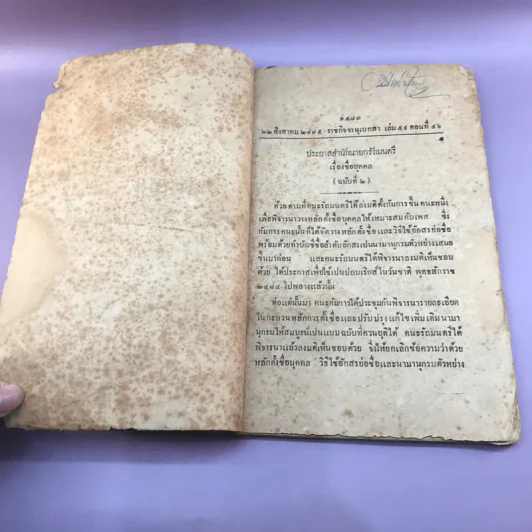 ๑๕๘๑
๒๒ สิงหาคม ๒๔๘๕ ราชกิจจานุเบกสา เล่ม ๕๙ ตอนที่ ๕๖
ประกาสสำนักนายกรัถมนตรี
เรื่องชื่อบุคคล
( ฉบับที่ ๒ )
ด้วยตามที่คนะรัถมนตรีได้ลงมติตั้งกัมการขึ้นคนะหนึ่ง
เพื่อพิจารนาวางหลักตั้งชื่อบุคคลไห้เหมาะสมกับเพส ซึ่ง
กัมการคนะนั้นก็ได้จัดวางหลักตั้งชื่อและวิธีไช้อักสรย่อชื่อ
พร้อมด้วยทำบัญชีชื่อสำดับอักสรเปนนามานุกรมตัวหย่างเสนอ
ขึ้นมาก่อน และคนะรัถมนตรีได้พิจารนาลงมติเห็นชอบ
ด้วย ได้ประกาสเพื่อไช้เปนปถมเริกส์ไนวันชาติ พุทธสักราช
๒๔๘๕ ไปพลางแล้วนั้น
ต่อแต่นั้นมา คนะกัมการได้ประชุมกันพิจารนารายละเอียด
ไนกะบวนหลักการตั้งชื่อและปรับปรุง แก้ไขเพิ่มเติมนามา
นุกรมไห้สมบูรน์เปนแบบฉบับที่ควนยุติได้ คนะรัถมนตรีได้
พิจารนาแล้วลงมติเห็นชอบด้วย จึงไห้ยกเลิกข้อความว่าด้วย
หลักตั้งชื่อบุคคล วิธีไช้อักสรย่อชื่อและนามานุกรมตัวหย่าง